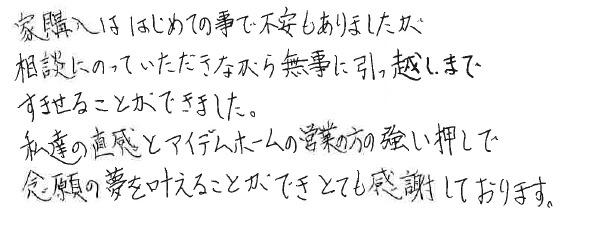 家購入は はじめての事で不安もありましたが
相談にのっていただきながら無事に引っ越しまで
すませることができました。
私達の直感とアイデムホームの営業の方の強い押しで
念願の夢を叶えることができとても感謝しております。